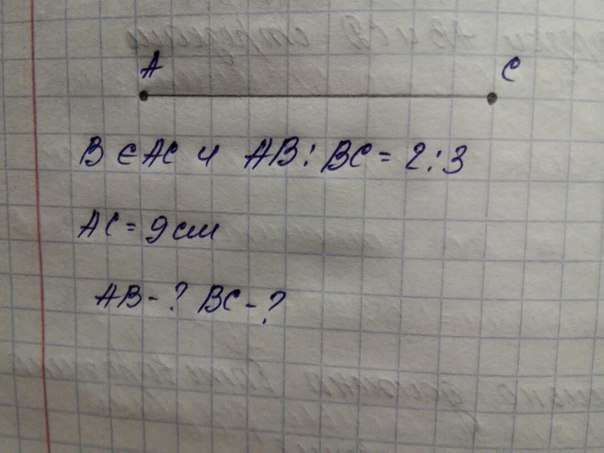 A C
B ∈ AC и AB : BC = 2 : 3
AC = 9 см
AB - ? BC - ?